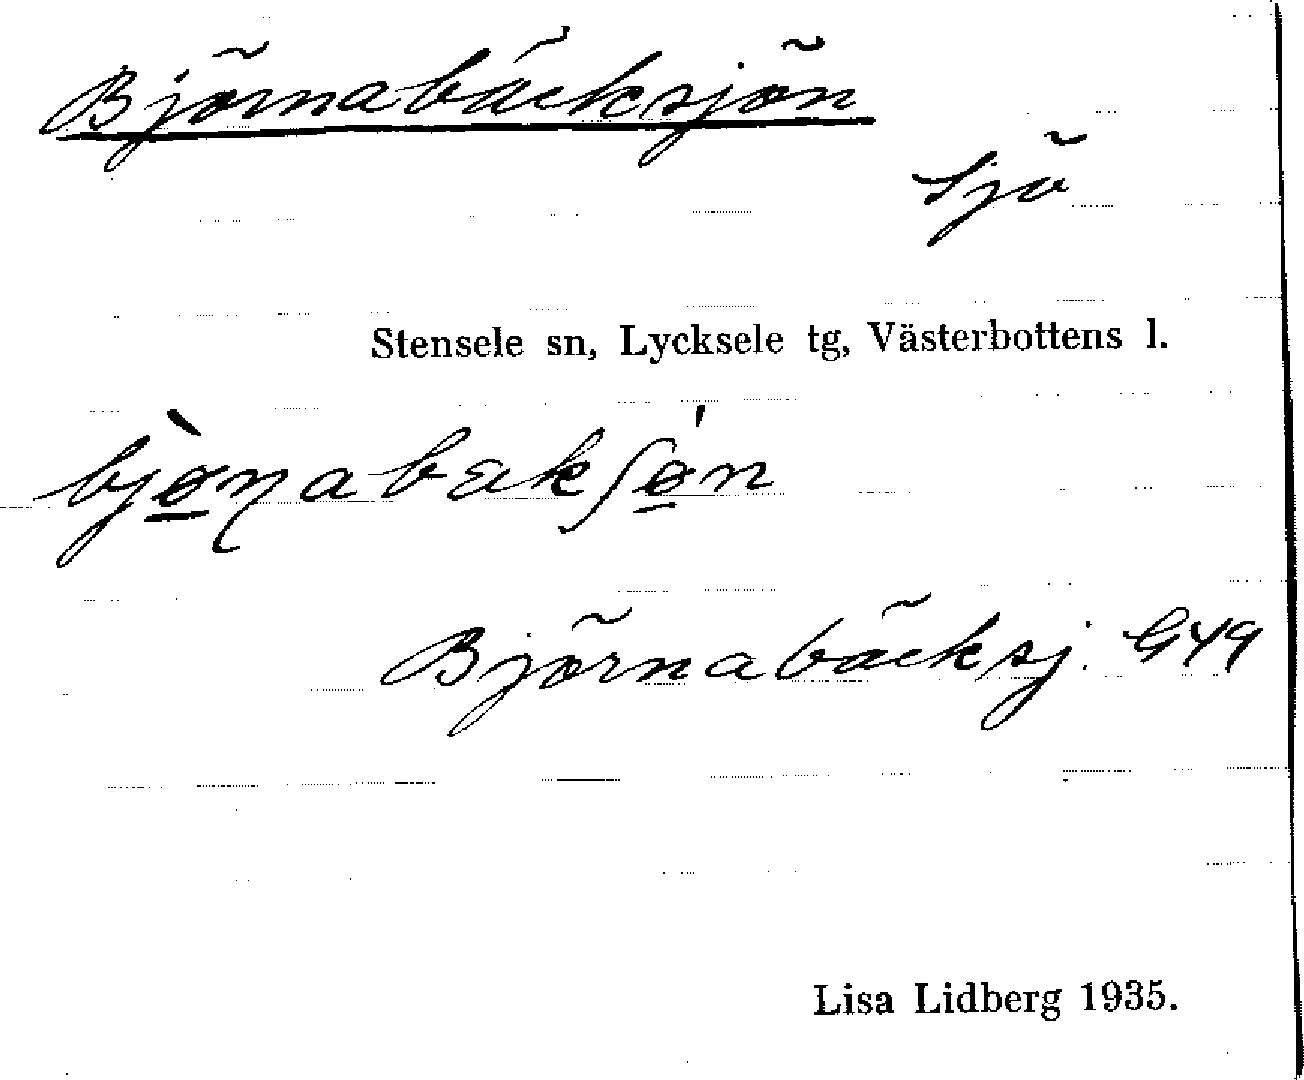 Björnabäcksjön
Sjö
Stensele sn, Lycksele tg, Västerbottens l.
bjø̠̀ɳabækʃǿ̠n
Björnabäcksj. G49
Lisa Lidberg 1935.